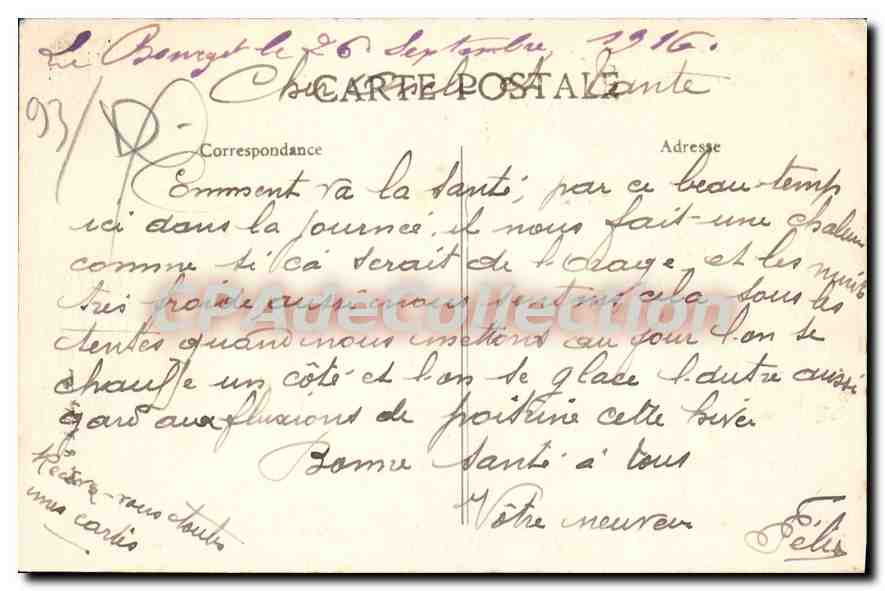 Le Bourget le 26 Septembre 1916.
CARTE POSTALE
Cher Oncle et Tante
93/
Correspondance
Adresse
Comment va la santé, par ce beau temp
ici dans la journeé, il nous fait une chaleur
comme si ca serait de l'orage, et les nuits
trés froide aussi nous sentons cela sous les
tentes quand nous mettons au jour l'on se
chauffe un côté et l'on se glace l'autre aussi
gard aux fluxions de poitrine cette hiver
Bonne santé à tous
Vôtre neuveu
Félix
Recevez-vous toutes
mes cartes
CPAdeCollection